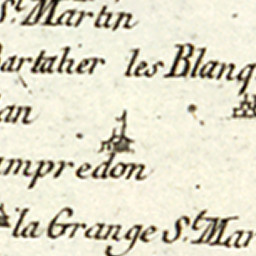 St. Martin
Bartalier les Blanq
an
ampredon
la Grange St. Mar